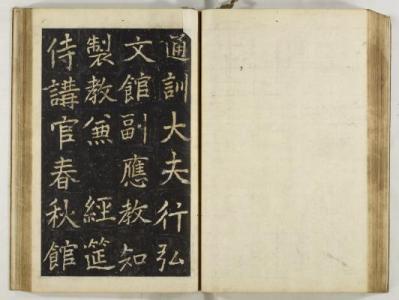 通訓大夫行弘
文館副應教知
製教兼 經筵
侍講官春秋館